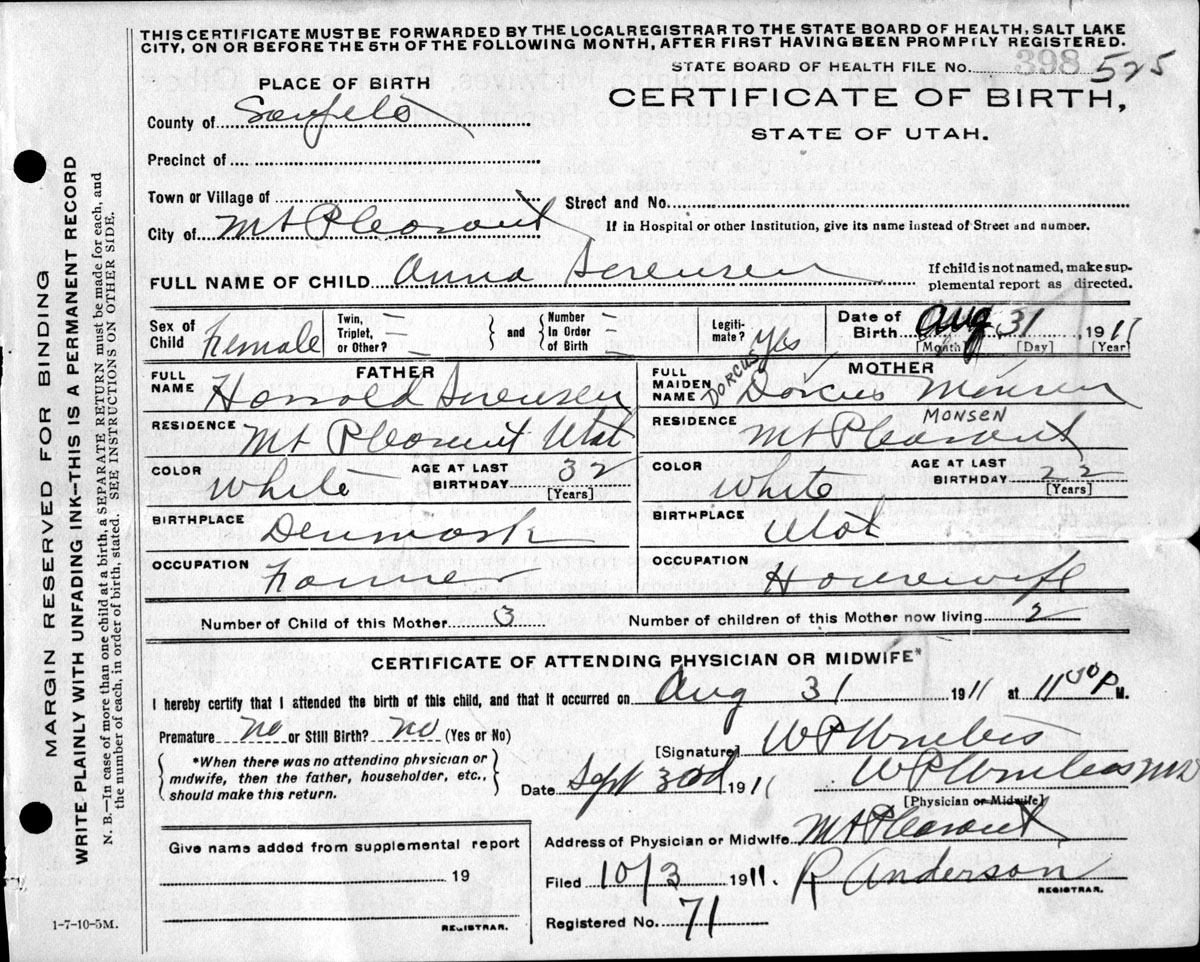 THIS CERTIFICATE MUST BE FORWARDED BY THE LOCAL REGISTRAR TO THE STATE BOARD OF HEALTH, SALT LAKE
CITY, ON OR BEFORE THE 5TH OF THE FOLLOWING MONTH, AFTER FIRST HAVING BEEN PROMPTLY REGISTERED.
STATE BOARD OF HEALTH FILE No. 398 525
PLACE OF BIRTH
CERTIFICATE OF BIRTH,
STATE OF UTAH.
County of Sanpete
Precinct of
Town or Village of
Street and No.
City of Mt Pleasant
If in Hospital or other Institution, give its name instead of Street and number.
FULL NAME OF CHILD Anna Sorensen
If child is not named, make sup-
plemental report as directed.
Sex of Child Female
Twin, Triplet, or Other?
and
Number In Order of Birth
Legiti-mate? Yes
Date of Birth Aug 31 1911
[Month] [Day] [Year]
FATHER
FULL NAME Harrold Sorensen
RESIDENCE Mt Pleasant Utah
COLOR White AGE AT LAST BIRTHDAY 32 [Years]
BIRTHPLACE Denmark
OCCUPATION Farmer
MOTHER
FULL MAIDEN NAME DORCUS Dorcus Monsen
MONSEN
RESIDENCE Mt Pleasant
COLOR White AGE AT LAST BIRTHDAY 22 [Years]
BIRTHPLACE Utah
OCCUPATION Housewife
Number of Child of this Mother 3 Number of children of this Mother now living 2
CERTIFICATE OF ATTENDING PHYSICIAN OR MIDWIFE*
I hereby certify that I attended the birth of this child, and that it occurred on Aug 31 1911 at 11 00 P M.
Premature no or Still Birth? no (Yes or No)
[Signature]
*When there was no attending physician or
midwife, then the father, householder, etc.,
should make this return.
Date Sept 30d 1911
[Physician or Midwife]
Address of Physician or Midwife Mt Pleasant
Give name added from supplemental report
19
REGISTRAR.
Filed 10/3 1911. R Anderson
REGISTRAR.
Registered No. 71
1-7-10-5M.
MARGIN RESERVED FOR BINDING
WRITE PLAINLY WITH UNFADING INK—THIS IS A PERMANENT RECORD
N. B.—In case of more than one child at a birth, a SEPARATE RETURN must be made for each, and
the number of each, in order of birth, stated. SEE INSTRUCTIONS ON OTHER SIDE.